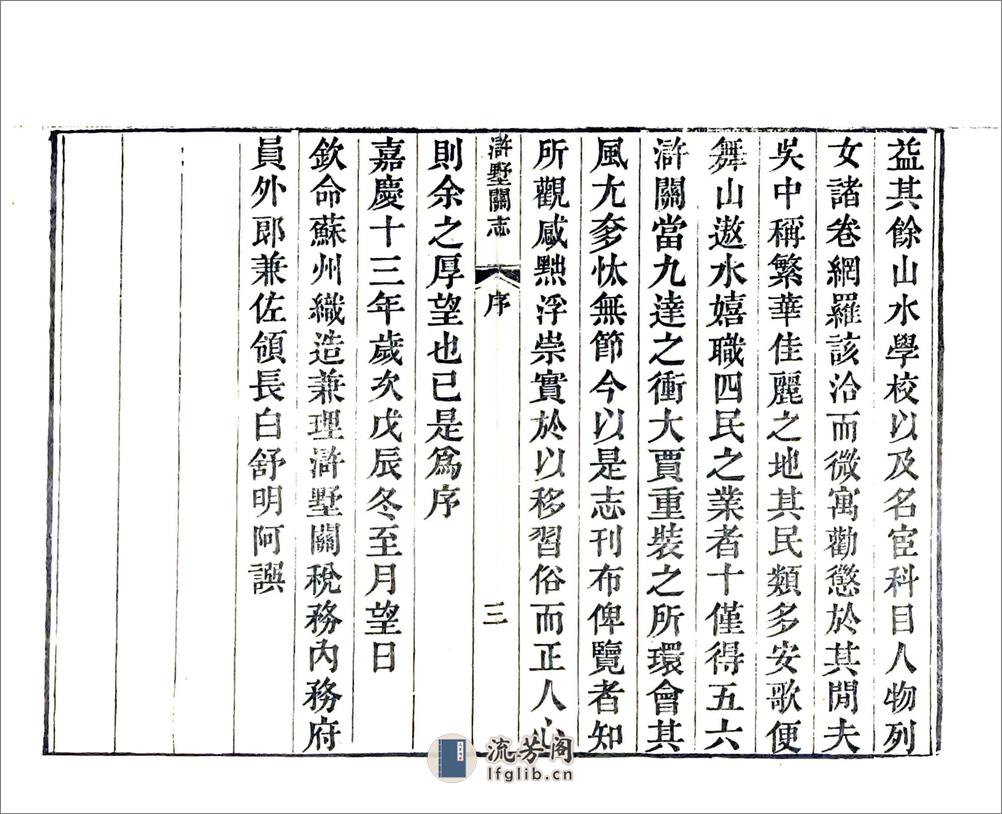 益其餘山水學校以及名宦科目人物列
女諸卷網羅該洽而微寓勸懲於其閒夫
吳中稱繁華佳麗之地其民類多安歌便
舞山遨水嬉職四民之業者十僅得五六
滸關當九達之衝大賈重裝之所環會其
風尤奓忲無節今以是志刊布俾覽者知
所觀感黜浮崇實於以移習俗而正人心
滸墅關志
序
三
則余之厚望也已是爲序
嘉慶十三年歲次戊辰冬至月望日
欽命蘇州織造兼理滸墅關稅務內務府
員外郎兼佐領長白舒明阿譔
流芳阁
lfglib.cn